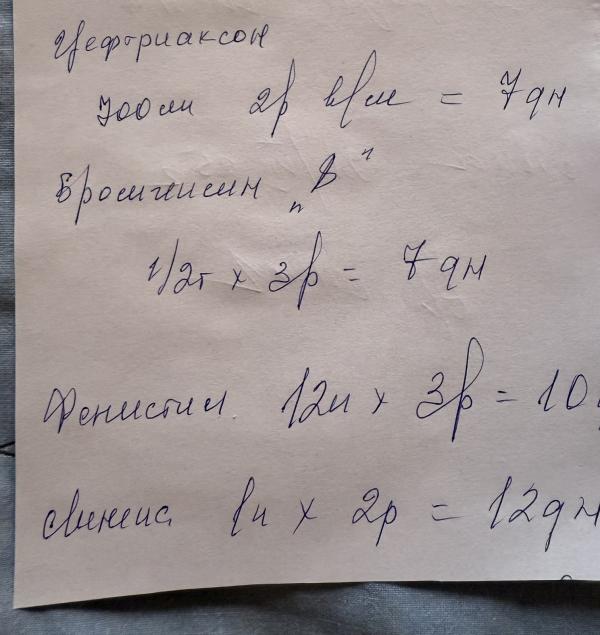 Цефтриаксон
700мл 2р в/м = 7дн
Бромгексин „8"
1/2т х 3р = 7дн
Фенистил 12к х 3р = 10
Линекс 1к х 2р = 12дн